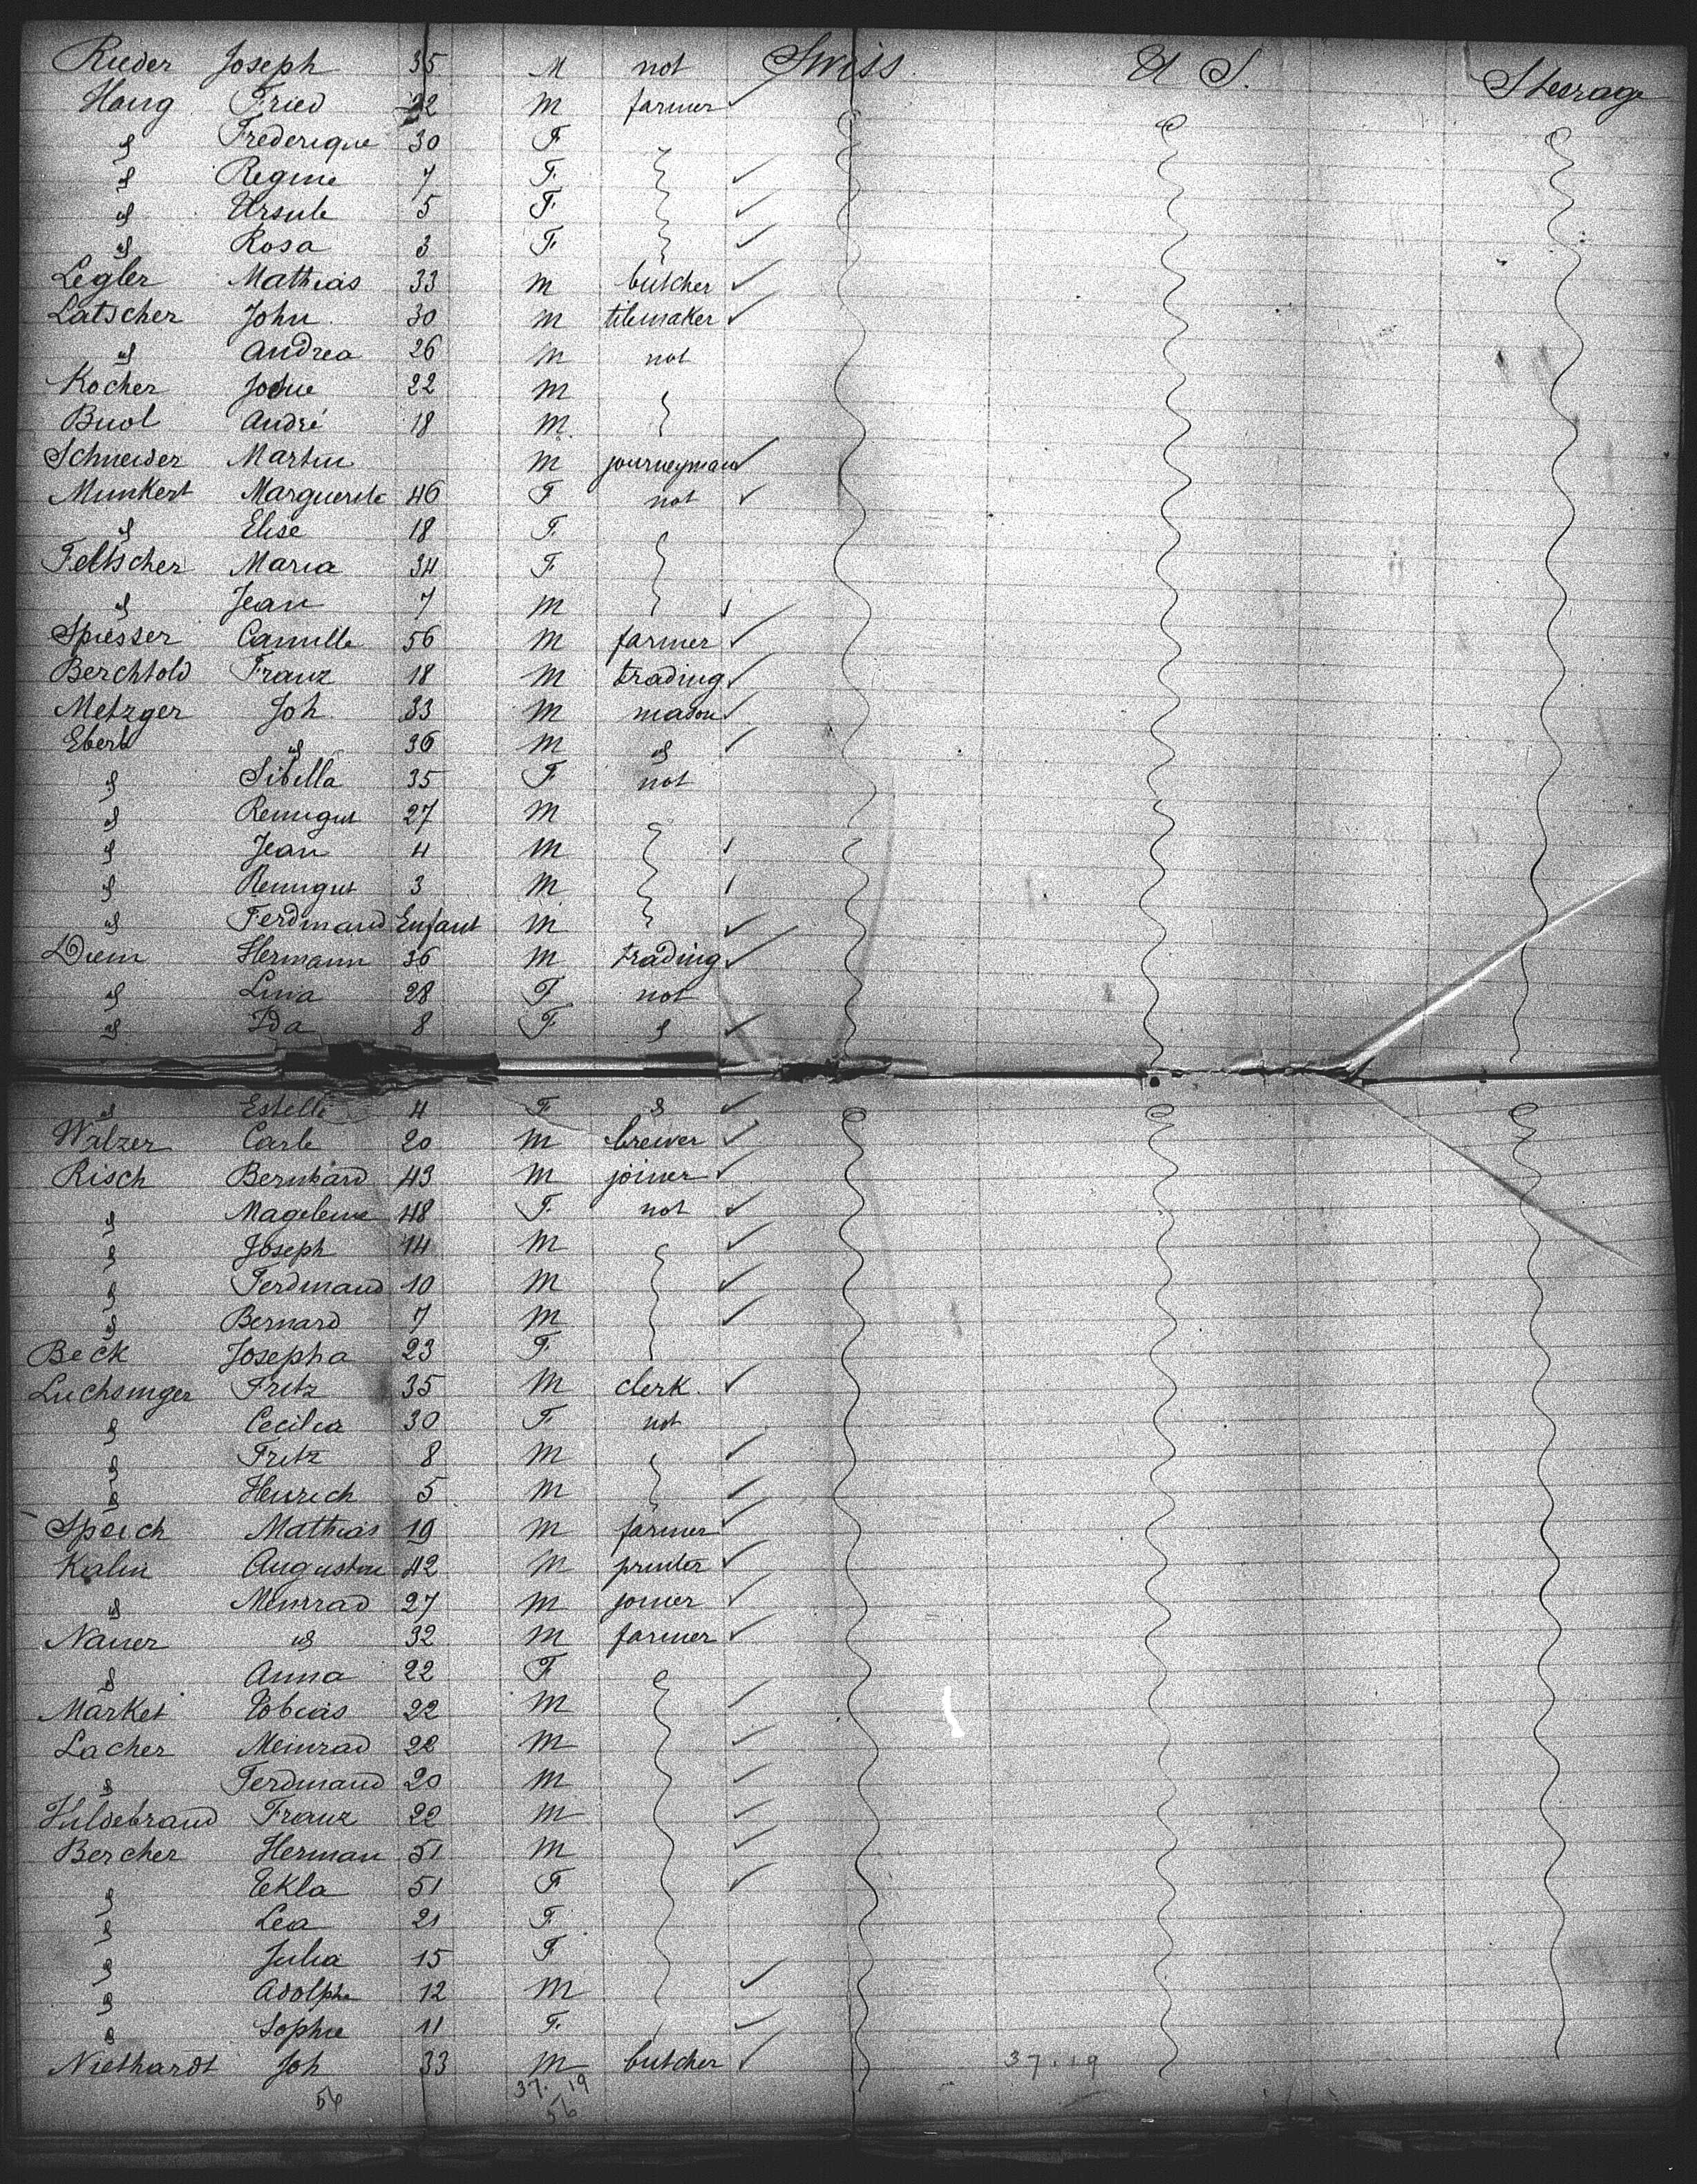 Rieder Joseph 35 M not Swiss U S. Steerage
Haug Fried 32 M farmer
" Frederique 30 F
" Regine 7 F
" Ursule 5 F
" Rosa 3 F
Legler Mathias 33 M butcher
Latscher John 30 M tilemaker
" Andrea 26 M not
Kocher Josue 22 M
Buol André 18 M
Schneider Martin M journeyman
Munkert Marguerite 46 F not
" Elise 18 F
Feltscher Maria 34 F
" Jean 7 M
Spiesser Camille 56 M farmer
Berchtold Franz 18 M trading
Metzger Joh 33 M mason
Ebert " 36 M "
" Sibella 35 F not
" 27 M
" Jean 4 M
" 3 M
" Ferdinand Enfant M
Diem Hermann 36 M trading
" Lina 28 F not
" Ida 8 F "
" Estelle 4 F "
Walzer Carle 20 M brewer
Risch Bernhard 43 M joiner
" 48 F not
" Joseph 14 M
" Ferdinand 10 M
" Bernard 7 M
Beck Josepha 23 F
Luchsinger Fritz 35 M clerk.
" Cecilia 30 F not
" Fritz 8 M
" Henrich 5 M
Speich Mathias 19 M farmer
Kalin Augustin 42 M printer
" Meinrad 27 M joiner
Nauer " 32 M farmer
" Anna 22 F
Market Tobias 22 M
Lacher Meinrad 22 M
" Ferdinand 20 M
Hildebrand Franz 22 M
Bercher Herman 51 M
" Tekla 51 F
" Lea 21 F
" Julia 15 F
" Adolphe 12 M
" Sophie 11 F
Niethardt Joh 33 M butcher 37.19
56 37. 19
56